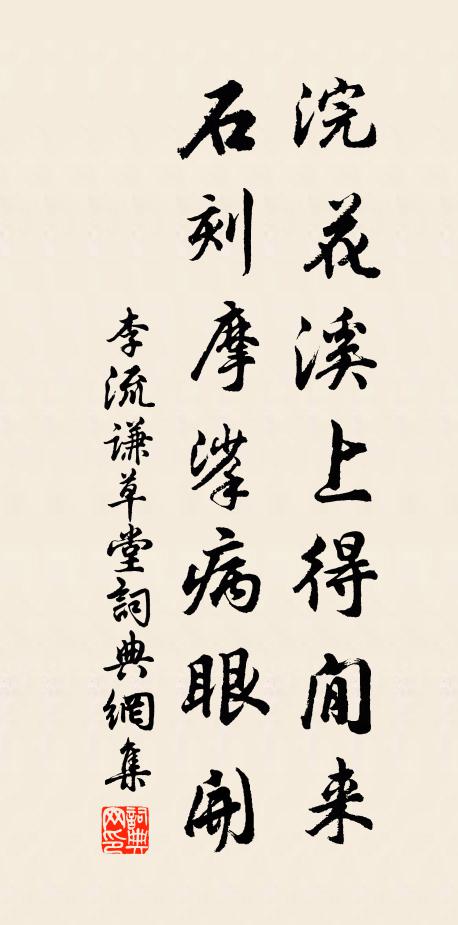 浣花溪上得閒来
石刻摩挲病眼開
李流謙草堂詞典網集
詞典網印